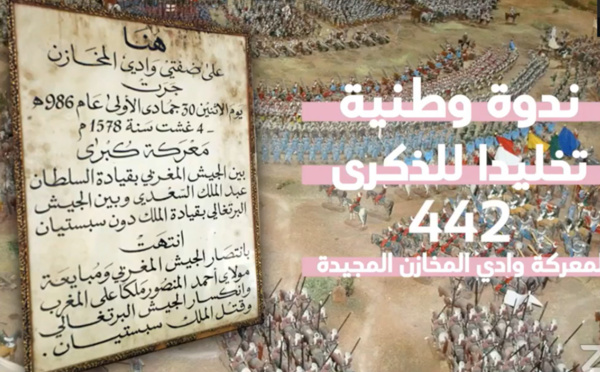 هنا
على ضفتي وادي المخازن
جرت
يوم الاثنين 30 جمادى الأولى عام 986هـ
- 4 غشت سنة 1578 م
معركة كبرى
بين الجيش المغربي بقيادة السلطان
عبد الملك السعدي وبين الجيش
البرتغالي بقيادة الملك دون سبستيان
انتهت
بانتصار الجيش المغربي ومبايعة
مولاي أحمد المنصور ملكا على المغرب
وانكسار الجيش البرتغالي
وقتل الملك سبستيان .
ندوة وطنية
تخليدا للذكرى
442
لمعركة وادي المخازن المجيدة